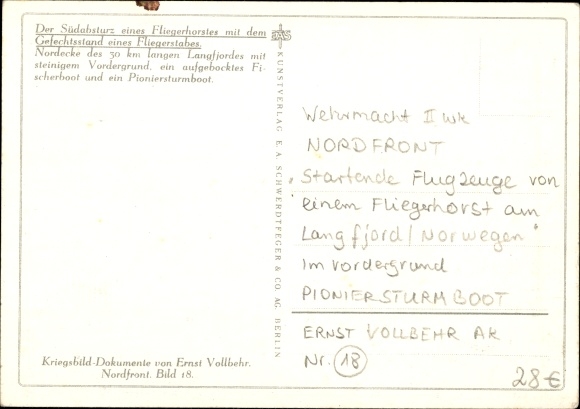 Der Südabsturz eines Fliegerhorstes mit dem
Gefechtsstand eines Fliegerstabes.
Nordecke des 30 km langen Langfjordes mit
steinigem Vordergrund, ein aufgebocktes Fi-
scherboot und ein Pioniersturmboot.
KUNSTVERLAG E. A. SCHWERDTFEGER & CO. AG. BERLIN
Wehrmacht II Wk
NORDFRONT
"Startende Flugzeuge von
einem Fliegerhorst am
Langfjord/Norwegen"
Im Vordergrund
PIONIERSTURMBOOT
ERNST VOLLBEHR AK
Nr. 18
28€
Kriegsbild-Dokumente von Ernst Vollbehr.
Nordfront. Bild 18.